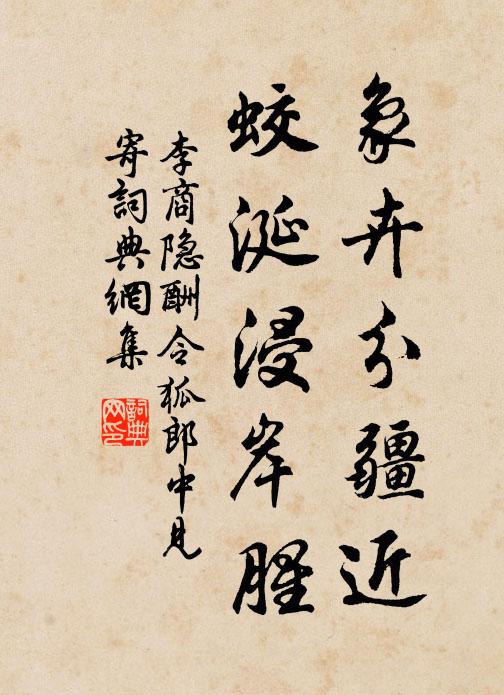 象卉分疆近
蛟涎浸岸腥
李商隐酬令狐郎中見
寄詞典網集
詞典
网印